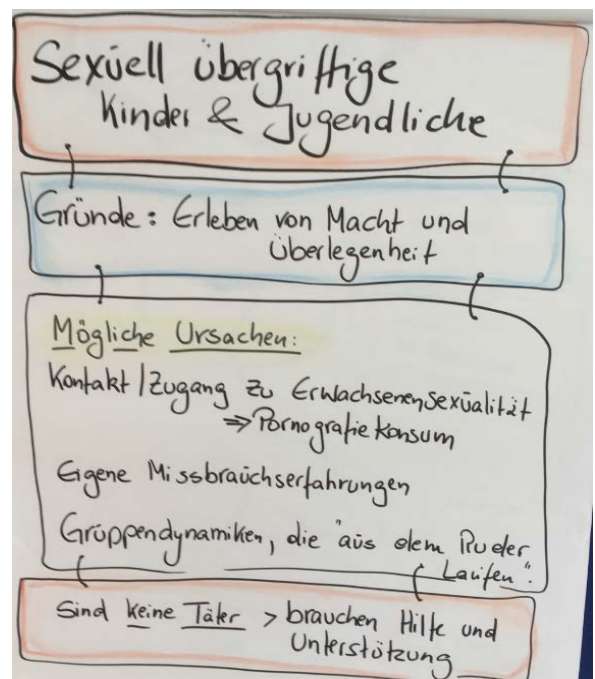 Sexuell übergriffige
Kinder & Jugendliche
Gründe: Erleben von Macht und
Überlegenheit
Mögliche Ursachen:
Kontakt/Zugang zu Erwachsenensexualität
⇒ Pornografie Konsum
Eigene Missbrauchserfahrungen
Gruppendynamiken, die "aus dem Ruder
Laufen".
Sind keine Täter > brauchen Hilfe und
Unterstützung